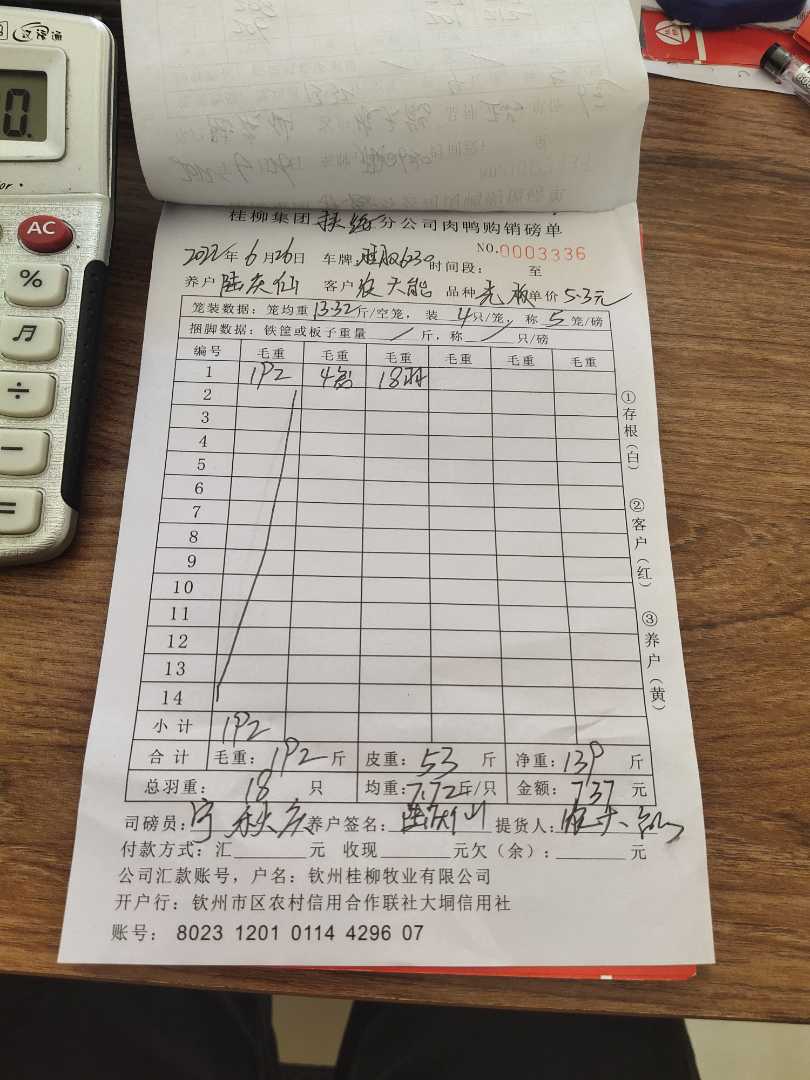 桂柳集团扶绥分公司肉鸭购销磅单
NO.0003336
2022年6月26日 车牌: 时间段: 至
养户 陆庆仙 客户 农大能 品种 单价 5.3元
笼装数据: 笼均重 13.32 斤/空笼, 装 4 只/笼, 称 5 笼/磅
捆脚数据: 铁筐或板子重量 / 斤, 称 / 只/磅
编号 毛重 毛重 毛重 毛重 毛重 毛重
1 192 4笼 18羽
2
3
4
5
6
7
8
9
10
11
12
13
14
小计 192
合计 毛重: 192 斤 皮重: 53 斤 净重: 139 斤
总羽重: 18 只 均重: 7.72 斤/只 金额: 737 元
司磅员: 养户签名: 陆庆仙 提货人:
付款方式: 汇 元 收现 元欠(余): 元
公司汇款账号, 户名: 钦州桂柳牧业有限公司
开户行: 钦州市区农村信用合作联社大垌信用社
账号: 8023 1201 0114 4296 07
①存根(白)
②客户(红)
③养户(黄)
0.
AC
%
÷
−
=